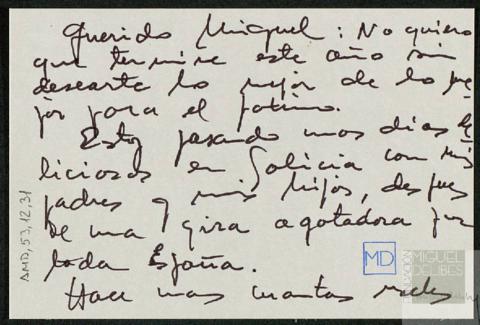 Querido Miguel: No quiero
que termine este año sin
desearte lo mejor de lo me-
jor para el futuro.
Estoy pasando unos días de-
liciosos en Galicia con mis
padres y mis hijos, después
de una gira agotadora por
toda España.
Hace unas cuantas
AMD, 53, 12, 31
MD
FUNDACIÓN
MIGUEL
DELIBES